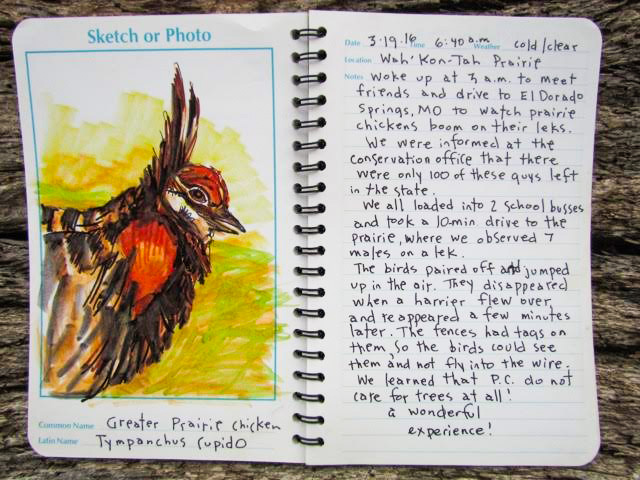 Sketch or Photo
Common Name Greater Prairie chicken
Latin Name Tympanchus Cupido
Date 3.19.16 Time 6:40 a.m Weather cold/clear
Location Wah' Kon-Tah Prairie
Notes Woke up at 3 a.m. to meet
friends and drive to El Dorado
Springs, MO to watch prairie
chickens boom on their leks.
We were informed at the
conservation office that there
were only 100 of these guys left
in the state.
We all loaded into 2 school busses
and took a 10 min. drive to the
prairie, where we observed 7
males on a lek.
The birds paired off and jumped
up in the air. They disappeared
when a harrier flew over
and reappeared a few minutes
later. The fences had tags on
them, so the birds could see
them and not fly into the wire.
We learned that P.C. do not
care for trees at all!
a wonderful
experience!